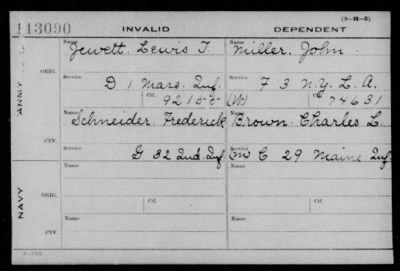 (3-H-3)
113090 INVALID DEPENDENT
ARMY
ORIG.
Name Jewett, Lewis T. Name Miller, John
Service D 1 Mass. Inf. Service F 3 N.Y. L. A.
Ctf. 92155 (W) Ctf. 74631
CTF.
Name Schneider, Frederick Name Brown, Charles L.
Service G 32 Ind. Inf. Service C 29 Maine Inf.
NAVY
ORIG.
Name Name
Ctf. Ctf.
CTF.
Name Name